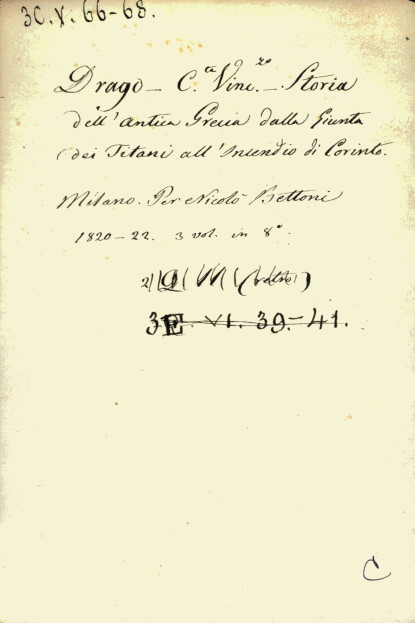 3C.V. 66-68.
Drago - C.te Vinc.zo - Storia
dell'antica Grecia dalla Giunta
dei Titani all'Incendio di Corinto.
Milano. Per Nicolò Bettoni
1820-22. 3 vol. in 8°.
3E. VI. 39.-41.
C